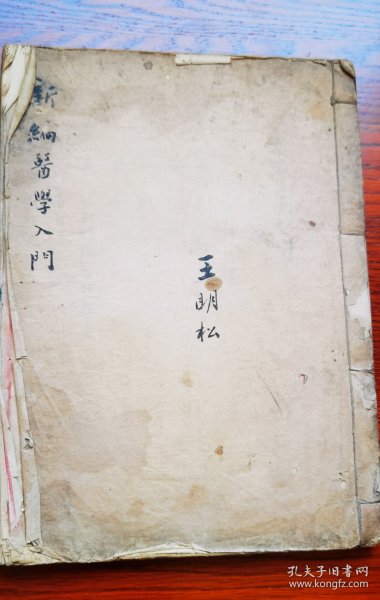 新編醫學入門
王明松
孔夫子旧书网
www.kongfz.com